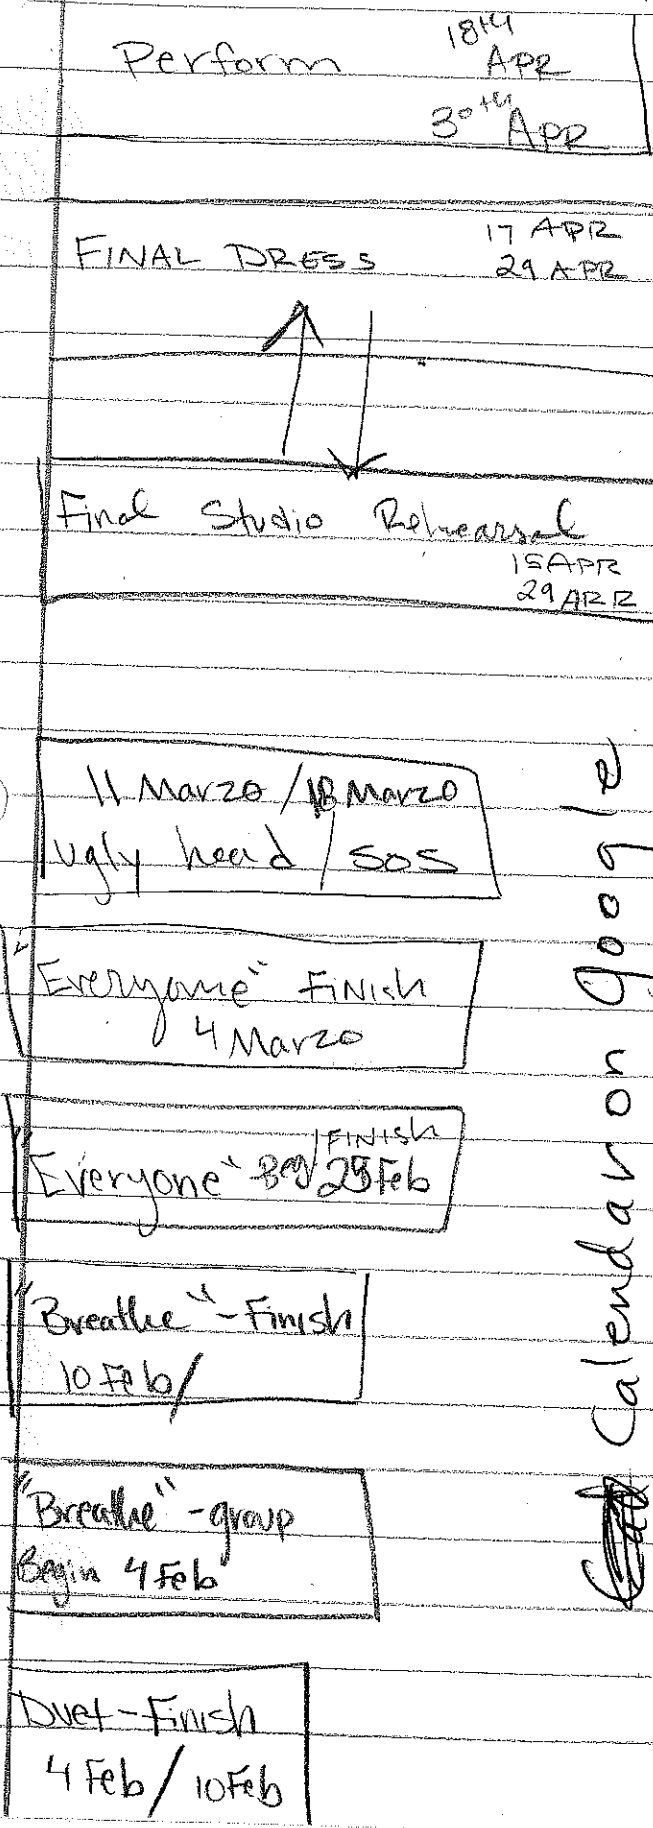 Perform 18th APR
30th APR
FINAL DRESS 17 APR
29 APR
Final Studio Rehearsal
15 APR
29 APR
11 Marzo / 18 Marzo
Ugly head / SOS
"Everyone" Finish
4 Marzo
"Everyone" Beg / FINISH
25 Feb
"Breathe" - Finish
10 Feb /
"Breathe" - group
Begin 4 Feb
Duet - Finish
4 Feb / 10 Feb
Calendar on google